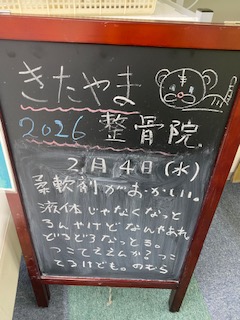 きたやま
2026 整骨院
2月4日(水)
柔軟剤がまかい。
液体じゃなくなっと
るんやけど なんやあれ
どろどろなっとる。
つこてええんか?つこ
てるけども。のむら